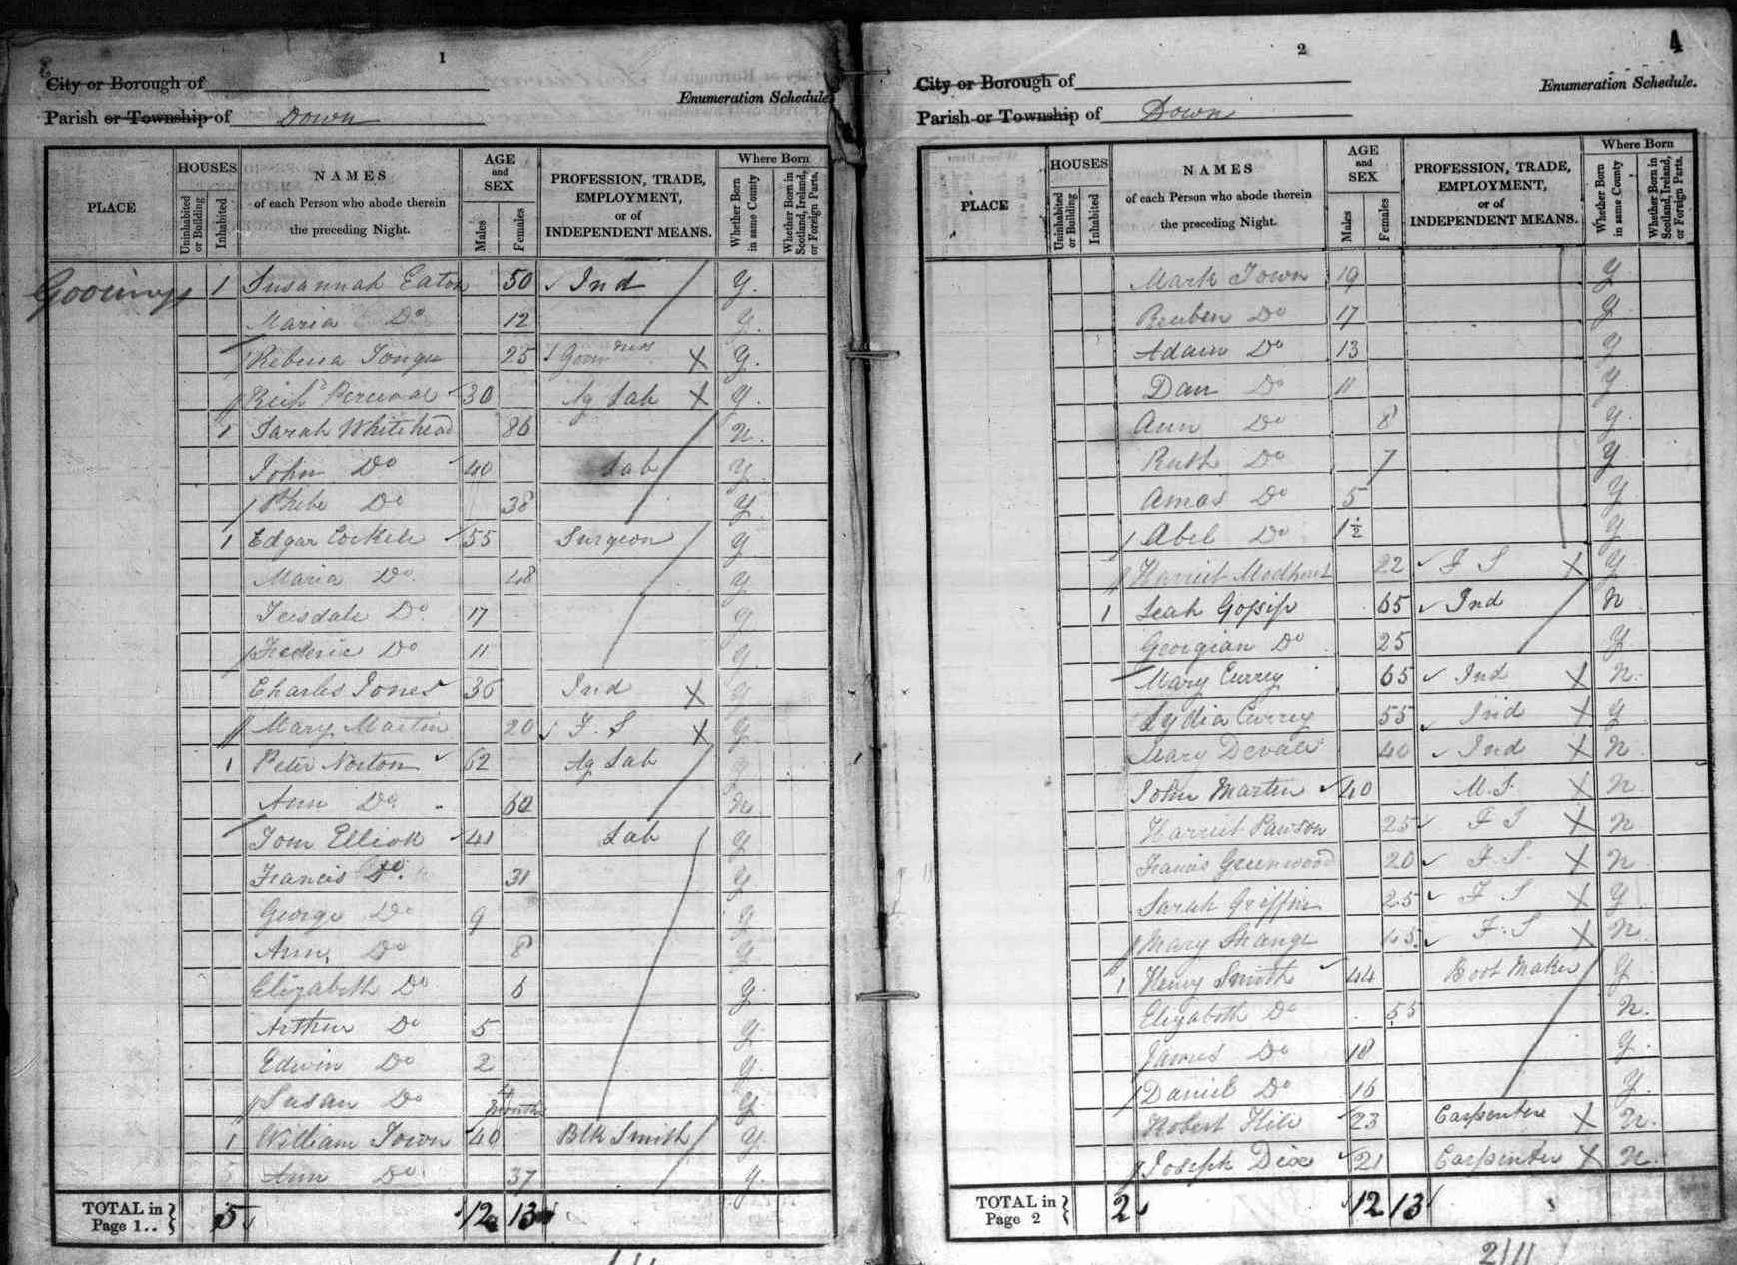 1
City or Borough of
Enumeration Schedule
Parish or Township of Down
PLACE
HOUSES
Uninhabited or Building
Inhabited
NAMES of each Person who abode therein the preceding Night.
AGE and SEX
Males
Females
PROFESSION, TRADE, EMPLOYMENT, or of INDEPENDENT MEANS.
Where Born
Whether Born in same County
Whether Born in Scotland, Ireland, or Foreign Parts.
1 Susannah Eaton 50 Ind y.
Maria Do 12 y.
25 X y.
30 Ag Lab X y.
1 Sarah Whitehead 86 n.
John Do 40 Lab y
Phebe Do 38 y
1 Edgar 55 Surgeon y
Maria Do. 48 y
Teesdale Do. 17 y
Frederic Do 11 y
Charles Jones 36 Ind X y
Mary Martin 20 F. S X y
1 Peter Norton 62 Ag Lab y
Ann Do. n
Tom Elliott 41 Lab y
Francis Do. 31 y
George Do 9 y
Ann Do 8 y
Elizabeth Do 6 y
Arthur Do 5 y
Edwin Do 2 y
Susan Do 4 month y
1 William Town 40 Blk Smith y
Ann Do. 37 y
TOTAL in Page 1.. 5 12 13
2
4
City or Borough of
Enumeration Schedule.
Parish or Township of Down
PLACE
HOUSES
Uninhabited or Building
Inhabited
NAMES of each Person who abode therein the preceding Night.
AGE and SEX
Males
Females
PROFESSION, TRADE, EMPLOYMENT, or of INDEPENDENT MEANS.
Where Born
Whether Born in same County
Whether Born in Scotland, Ireland, or Foreign Parts.
Mark Town 19 y
Reuben Do 17 y
Adam Do 13 y
Dan Do 11 y
Ann Do 8 y
Ruth Do 7 y
Amos Do 5 y
Abel Do 1½ y
Harriet Modhurst 22 F S X y
1 Leah Gossip 65 Ind n
Georgian Do 25 y
Mary Currey 65 Ind X n.
Lydia Currey 55 Ind X y
Mary 40 Ind X n
John Martin 40 M.S. X n
Harriet Pawson 25 F S X n
Francis Greenwood 20 F.S. X n
Sarah Griffin 25 F S X y
Mary Strange F.S X n
1 Henry Smith 44 Boot Maker y
Elizabeth Do 55 n.
James Do 18 y
Daniel Do 16 y
Robert Hill 23 Carpenter X n.
Joseph Dix 21 Carpenter X n.
TOTAL in Page 2 2 12 13
2/11